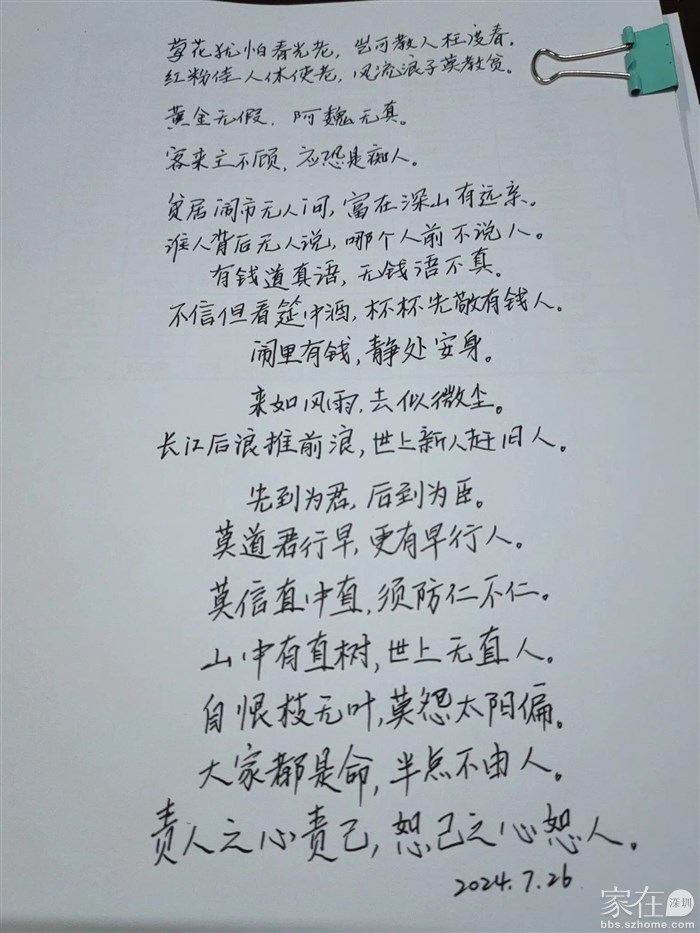 莺花犹怕春光老,岂可教人枉度春。
红粉佳人休使老,风流浪子莫教贫。
黄金无假,阿魏无真。
客来主不顾,应恐是痴人。
贫居闹市无人问,富在深山有远亲。
谁人背后无人说,哪个人前不说人。
有钱道真语,无钱语不真。
不信但看筵中酒,杯杯先敬有钱人。
闹里有钱,静处安身。
来如风雨,去似微尘。
长江后浪推前浪,世上新人赶旧人。
先到为君,后到为臣。
莫道君行早,更有早行人。
莫信直中直,须防仁不仁。
山中有直树,世上无直人。
自恨枝无叶,莫怨太阳偏。
大家都是命,半点不由人。
责人之心责己,恕己之心恕人。
2024.7.26
家在深圳
bbs.szhome.com